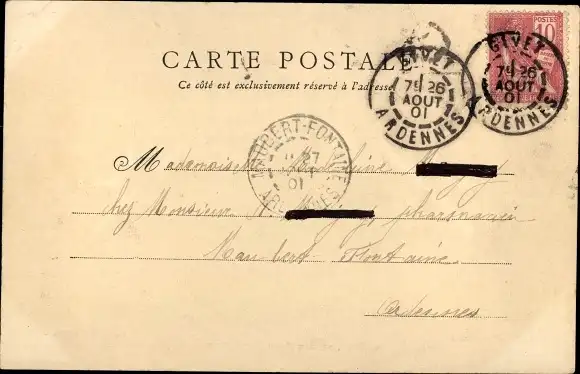 CARTE POSTALE
Ce côté est exclusivement réservé à l'adresse
POSTES
10
GIVET
7E 26
AOUT
01
ARDENNES
GIVET
7E 26
AOUT
01
ARDENNES
MAUBERT-FONTAINE
27
01
ARDENNES
Mademoiselle
chez Monsieur pharmacien
Maubert Fontaine
Ardennes